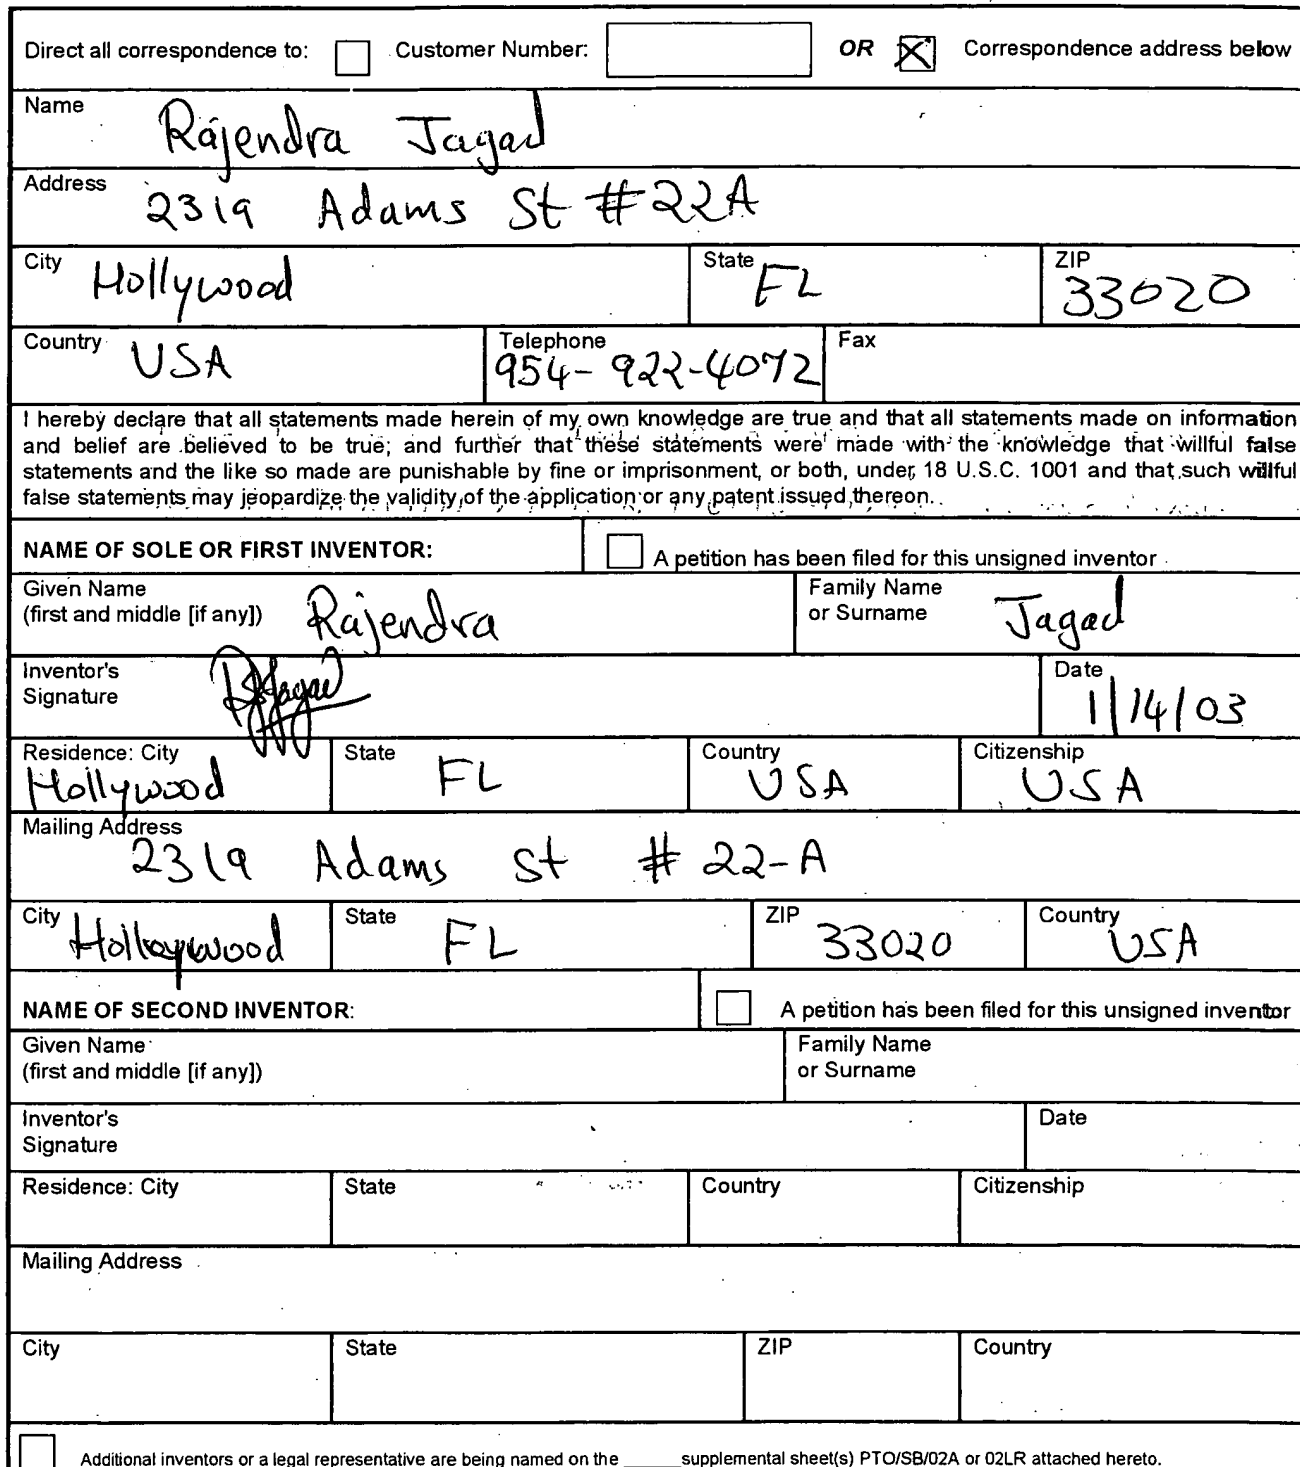 Direct all correspondence to: Customer Number: OR Correspondence address below
Name
Rajendra Jagad
Address
2319 Adams St #22A
City Hollywood State FL ZIP 33020
Country USA Telephone 954-922-4072 Fax
I hereby declare that all statements made herein of my own knowledge are true and that all statements made on information
and belief are believed to be true; and further that these statements were made with the knowledge that willful false
statements and the like so made are punishable by fine or imprisonment, or both, under 18 U.S.C. 1001 and that such willful
false statements may jeopardize the validity of the application or any patent issued thereon.
NAME OF SOLE OR FIRST INVENTOR: A petition has been filed for this unsigned inventor
Given Name Family Name
(first and middle [if any]) Rajendra or Surname Jagad
Inventor's Date
Signature RJagad 1/14/03
Residence: City State FL Country USA Citizenship USA
Hollywood
Mailing Address
2319 Adams St # 22-A
City Hollywood State FL ZIP 33020 Country USA
NAME OF SECOND INVENTOR: A petition has been filed for this unsigned inventor
Given Name Family Name
(first and middle [if any]) or Surname
Inventor's Date
Signature
Residence: City State Country Citizenship
Mailing Address
City State ZIP Country
Additional inventors or a legal representative are being named on the ______supplemental sheet(s) PTO/SB/02A or 02LR attached hereto.